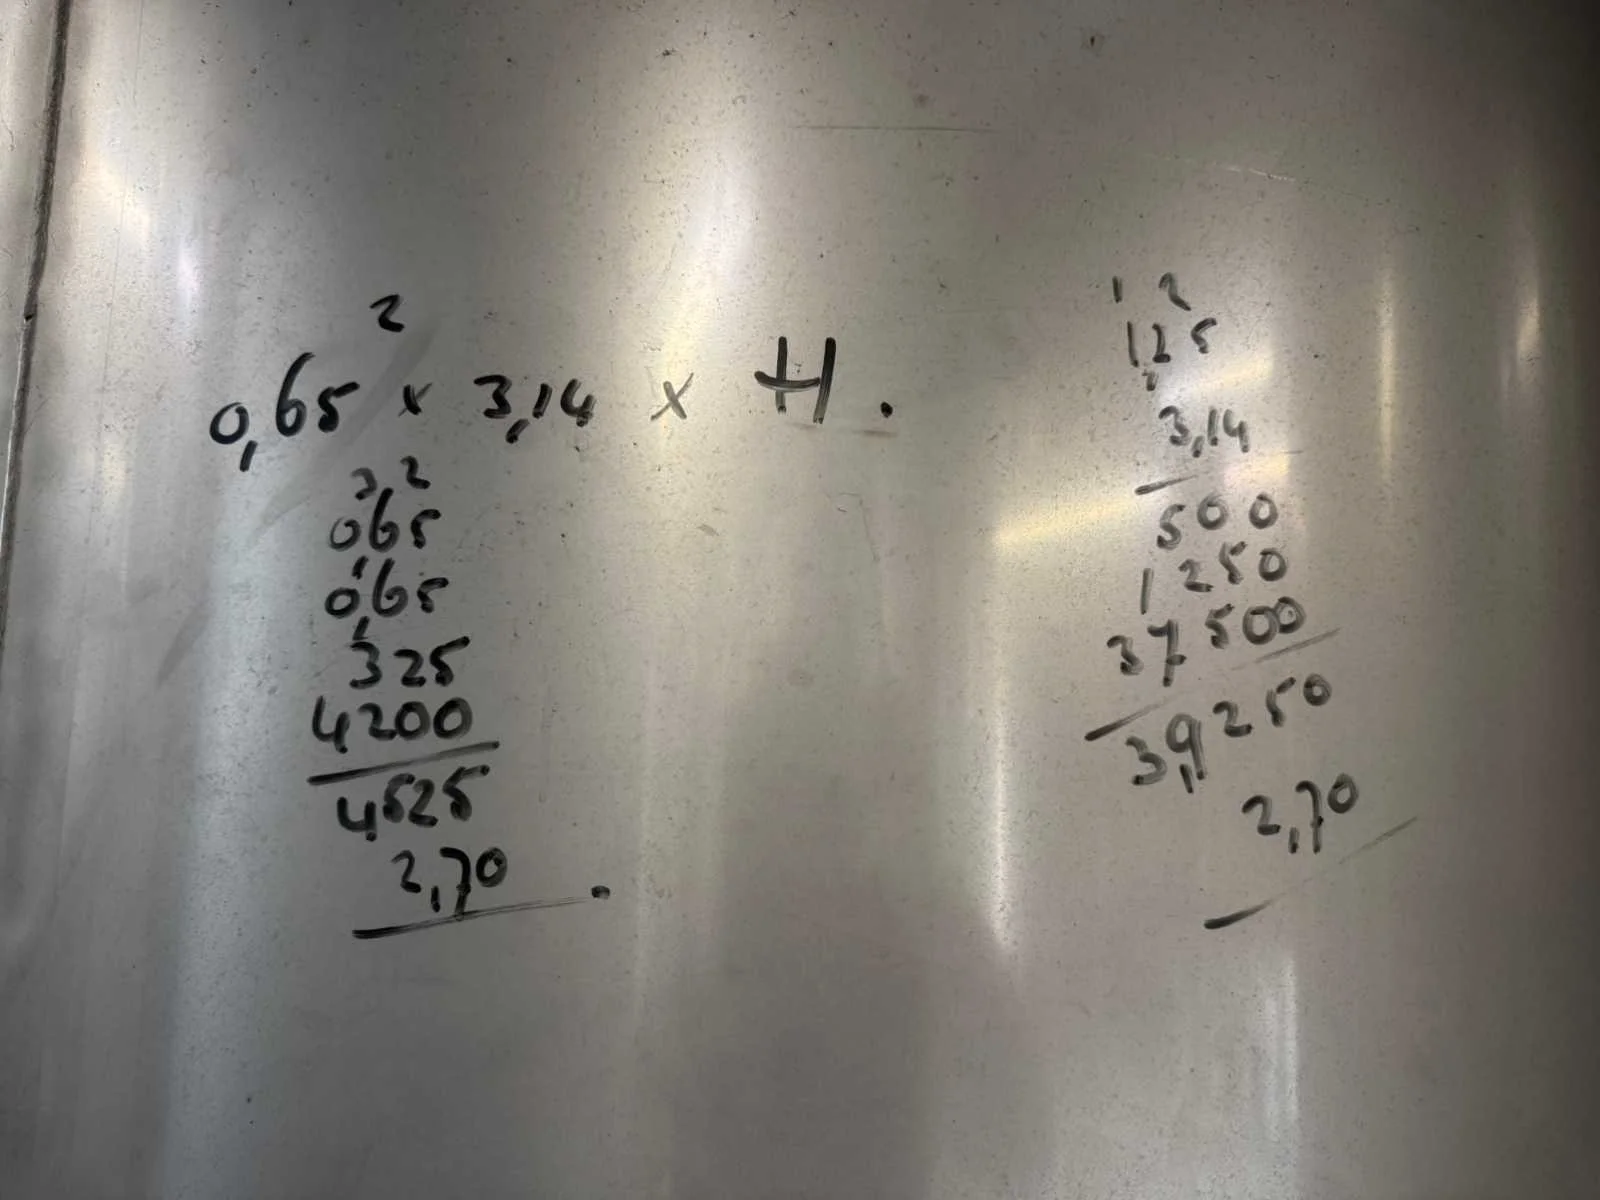 2
0,65 x 3,14 x H.
3,2
065
0,65
325
4200
4,525
2,70
1 2
125
3,14
500
1250
37500
3,9250
2,70